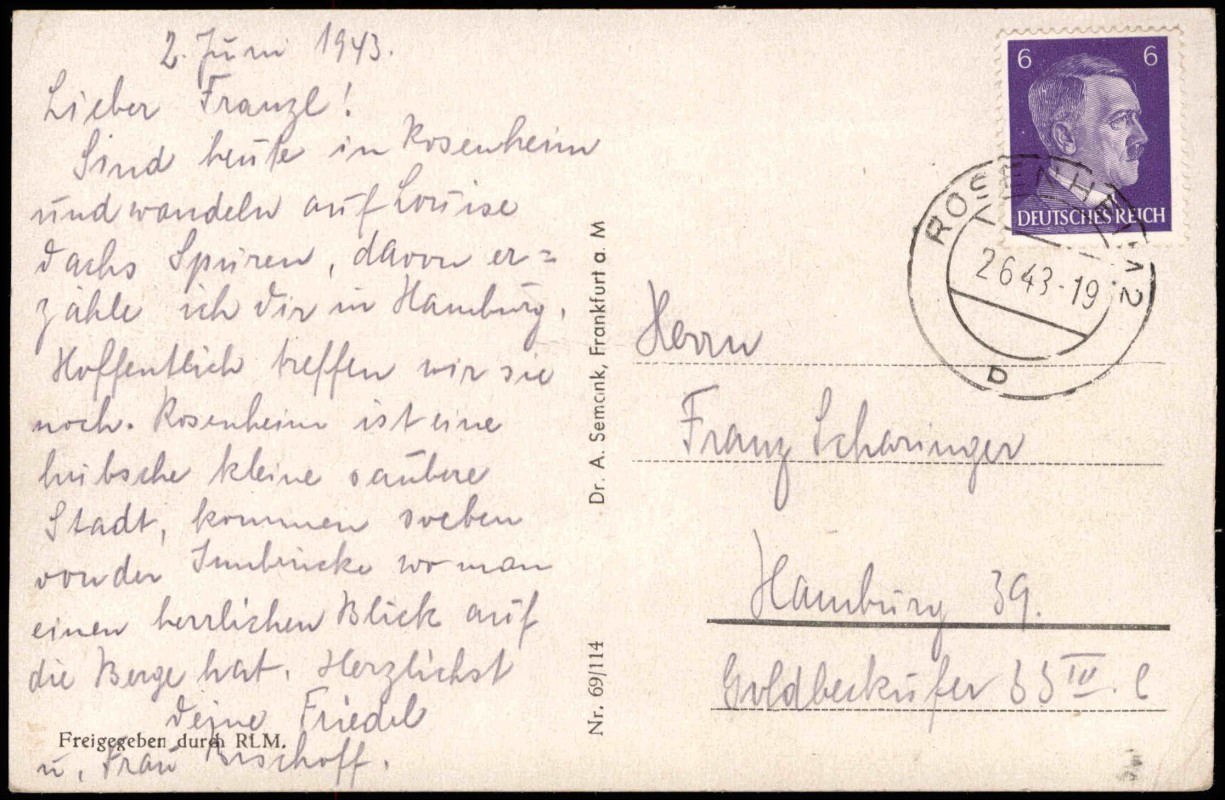 2. Juni 1943.
Lieber Franzl!
Sind heute in Rosenheim
und wandeln auf Louise
dachs Spuren, davon er=
zähle ich dir in Hamburg.
Hoffentlich treffen wir sie
noch. Rosenheim ist eine
hübsche kleine saubere
Stadt, kommen soeben
von der Innbrücke wo man
einen herrlichen Blick auf
die Berge hat. Herzlichst
deine Friedel
u. Frau Bischoff.
Freigegeben durch RLM.
Nr. 69/114
Dr. A. Semank, Frankfurt a. M
6 6
DEUTSCHES REICH
ROSENHEIM 2
2.6.43-19
b
Herrn
Franz Scharinger
Hamburg 39.
Goldbeckufer 33 IV. l